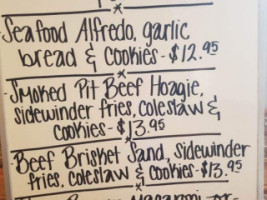 Seafood Alfredo, garlic
bread & Cookies - $12.95
Smoked Pit Beef Hoagie,
sidewinder fries, coleslaw &
cookies - $13.95
Beef Brisket Sand, sidewinder
fries, coleslaw & cookies - $13.95